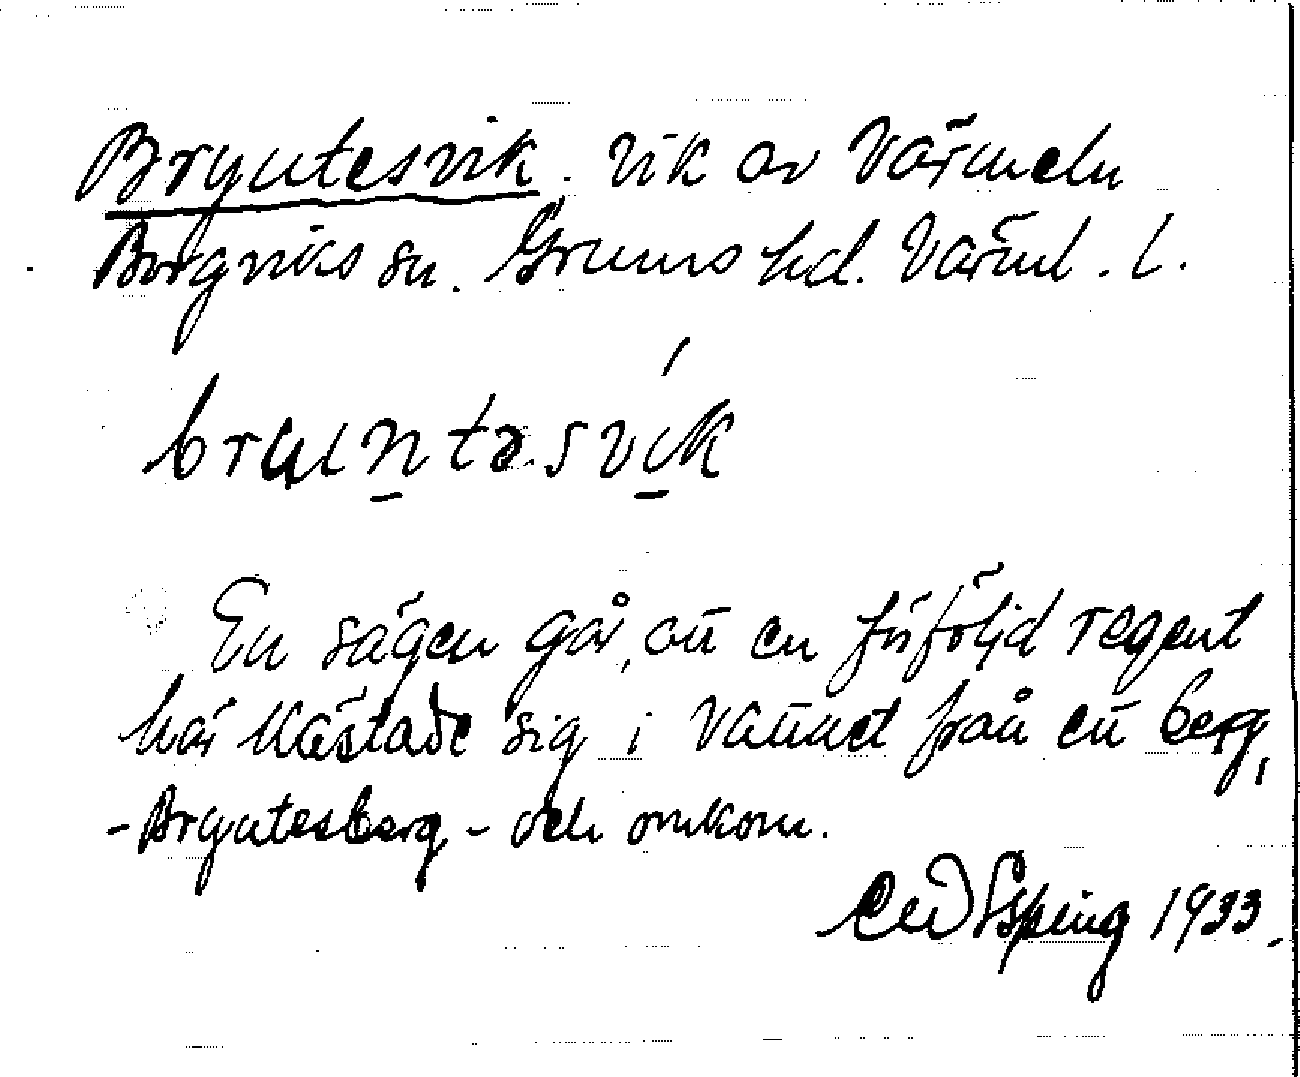 Bryntesvik. vik av Värmeln
Borgviks sn. Grums hd. Värml. l.
En sägen går, att en förföljd regent
här kastade sig i vattnet från ett berg,
- Bryntesberg - och omkom.
Esping 1933.